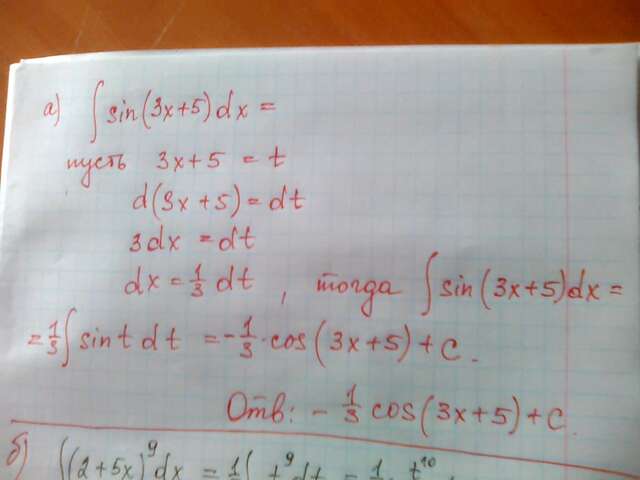 а) ∫ sin(3x+5)dx =
пусть 3x+5 = t
d(3x+5) = dt
3dx = dt
dx = 1/3 dt , тогда ∫ sin(3x+5)dx =
= 1/3 ∫ sin t dt = -1/3 · cos(3x+5) + C.
Отв: - 1/3 cos(3x+5) + C
б) ∫(2+5x)⁹dx = 1/ ∫ t⁹dt = 1/ · t¹⁰